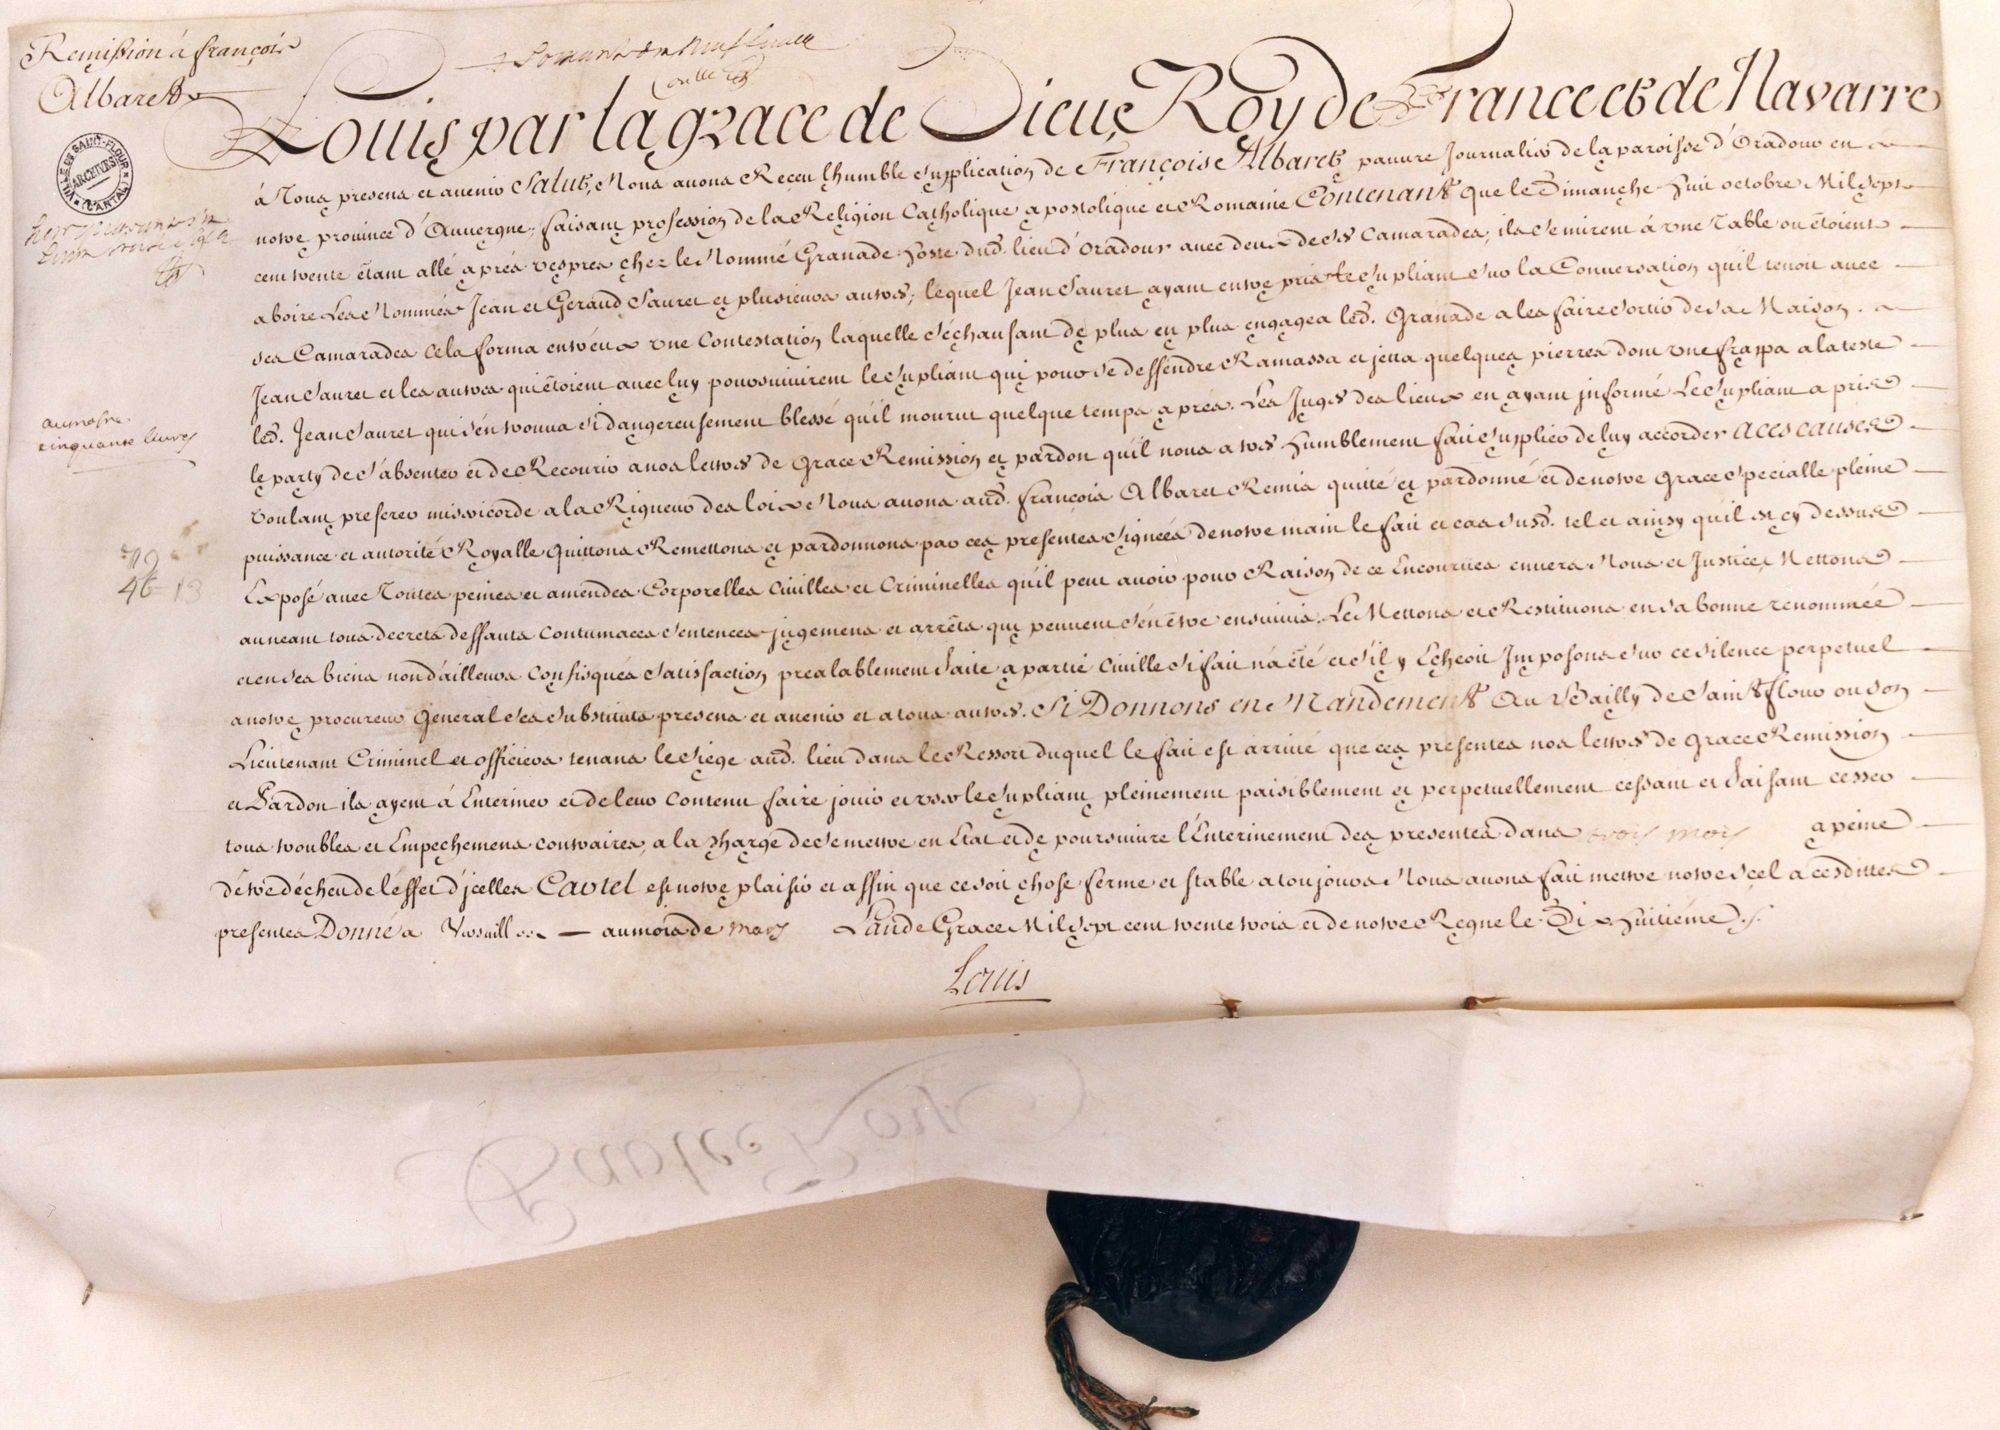 Remission à françois
Albaret
Louis par la grace de Dieu Roy de France et de Navarre
VILLE DE SAINT-FLOUR
ARCHIVES
(CANTAL)
à Tous presens et avenir Salut, Nous avons Receu l'humble Supplication de François Albaret pauvre Journalier de la paroisse d'Oradour en
notre province d'Auvergne, faisant profession de la Religion Catholique apostolique et Romaine Contenant que le Dimanche huit octobre Mil Sept
cent trente étant allé après vespres chez le Nommé Granade hoste dud. lieu d'oradour avec deux de ses Camarades, ils se mirent à une Table ou étoient
a boire Les Nommés Jean et Geraud Sauret et plusieurs autres, lequel Jean Sauret ayant entrepris le Supliant Sur la Conversation qu'il tenoit avec
ses Camarades cela forma entr'eux une Contestation laquelle s'echaufant de plus en plus engagea led. Granade a les faire Sortir de sa Maison.
Jean Sauret et les autres qui étoient avec luy poursuivirent le Supliant qui pour se deffendre Ramassa et jetta quelques pierres dont une frappa a la teste
led. Jean Sauret qui s'en trouva si dangereusement blessé qu'il mourut quelque temps après. Les Juges des lieux en ayant informé Le Supliant a pris
le party de s'absenter et de Recourir a nos lettres de Grace Remission et pardon qu'il nous a tres humblement fait Supplier de luy accorder A ces causes
voulant preferer misericorde a la Rigueur des loix Nous avons aud. françois Albaret Remis quitté et pardonné et de notre Grace Specialle pleine
puissance et autorité Royalle Quittons Remettons et pardonnons par ces presentes Signées de notre main le fait et cas Susd. tel et ainsy qu'il est cy dessus
Exposé avec Toutes peines et amendes Corporelles Civilles et Criminelles qu'il peut avoir pour Raison de ce Encourues envers Nous et Justice Mettons
au neant tous decrets deffauts Contumaces Sentences jugemens et arrêts qui peuvent s'en être ensuivis. Le Mettons et Restituons en sa bonne renommée
et en ses biens non d'ailleurs Confisqués Satisfaction prealablement faite a partie Civille Si fait n'a été et s'il y Echeoit Imposons sur ce silence perpetuel
a notre procureur General ses Substituts presens et avenir et a tous autres. Si Donnons en Mandement Au Bailly de Saint flour ou son
Lieutenant Criminel et officiers tenans le Siege aud. lieu dans le Ressort duquel le fait est arrivé que ces presentes nos lettres de Grace Remission
et Pardon ils ayent à Enteriner et de leur Contenu faire jouir et user le Supliant pleinement paisiblement et perpetuellement cessant et faisant cesser
tous troubles et Empechemens contraires, a la Charge de se mettre en Etat et de poursuivre l'Enterinement des presentes dans trois mois a peine
d'être déchu de l'effet d'icelles Car tel est notre plaisir et affin que ce soit chose ferme et stable a toujours Nous avons fait mettre notre Scel a cesdittes
presentes Donné a Versailles au mois de mars L'an de Grace Mil Sept cent trente trois et de notre Regne le Dix Huitième
aumosne
cinquante livres
Louis